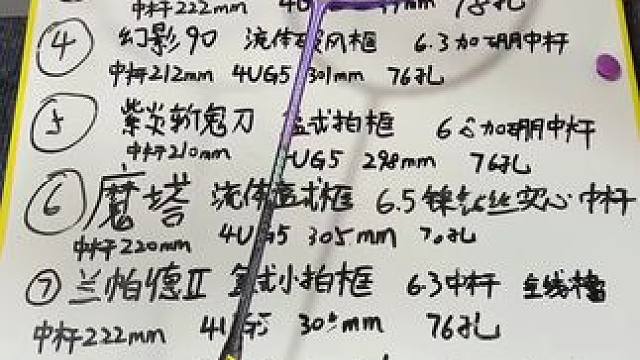 中杆222mm 4U 78孔
④ 幻影90 流体破风框 6.3加硼中杆
中杆212mm 4UG5 301mm 76孔
⑤ 紫炎斩鬼刀 盒式拍框 6.6加硼中杆
中杆210mm 4UG5 298mm 76孔
⑥ 魔塔 流体盒式框 6.5镍钛丝实心中杆
中杆220mm 4UG5 305mm 70孔
⑦ 兰帕德II 盒式小拍框 6.3中杆 全线槽
中杆222mm 4UG5 mm 76孔